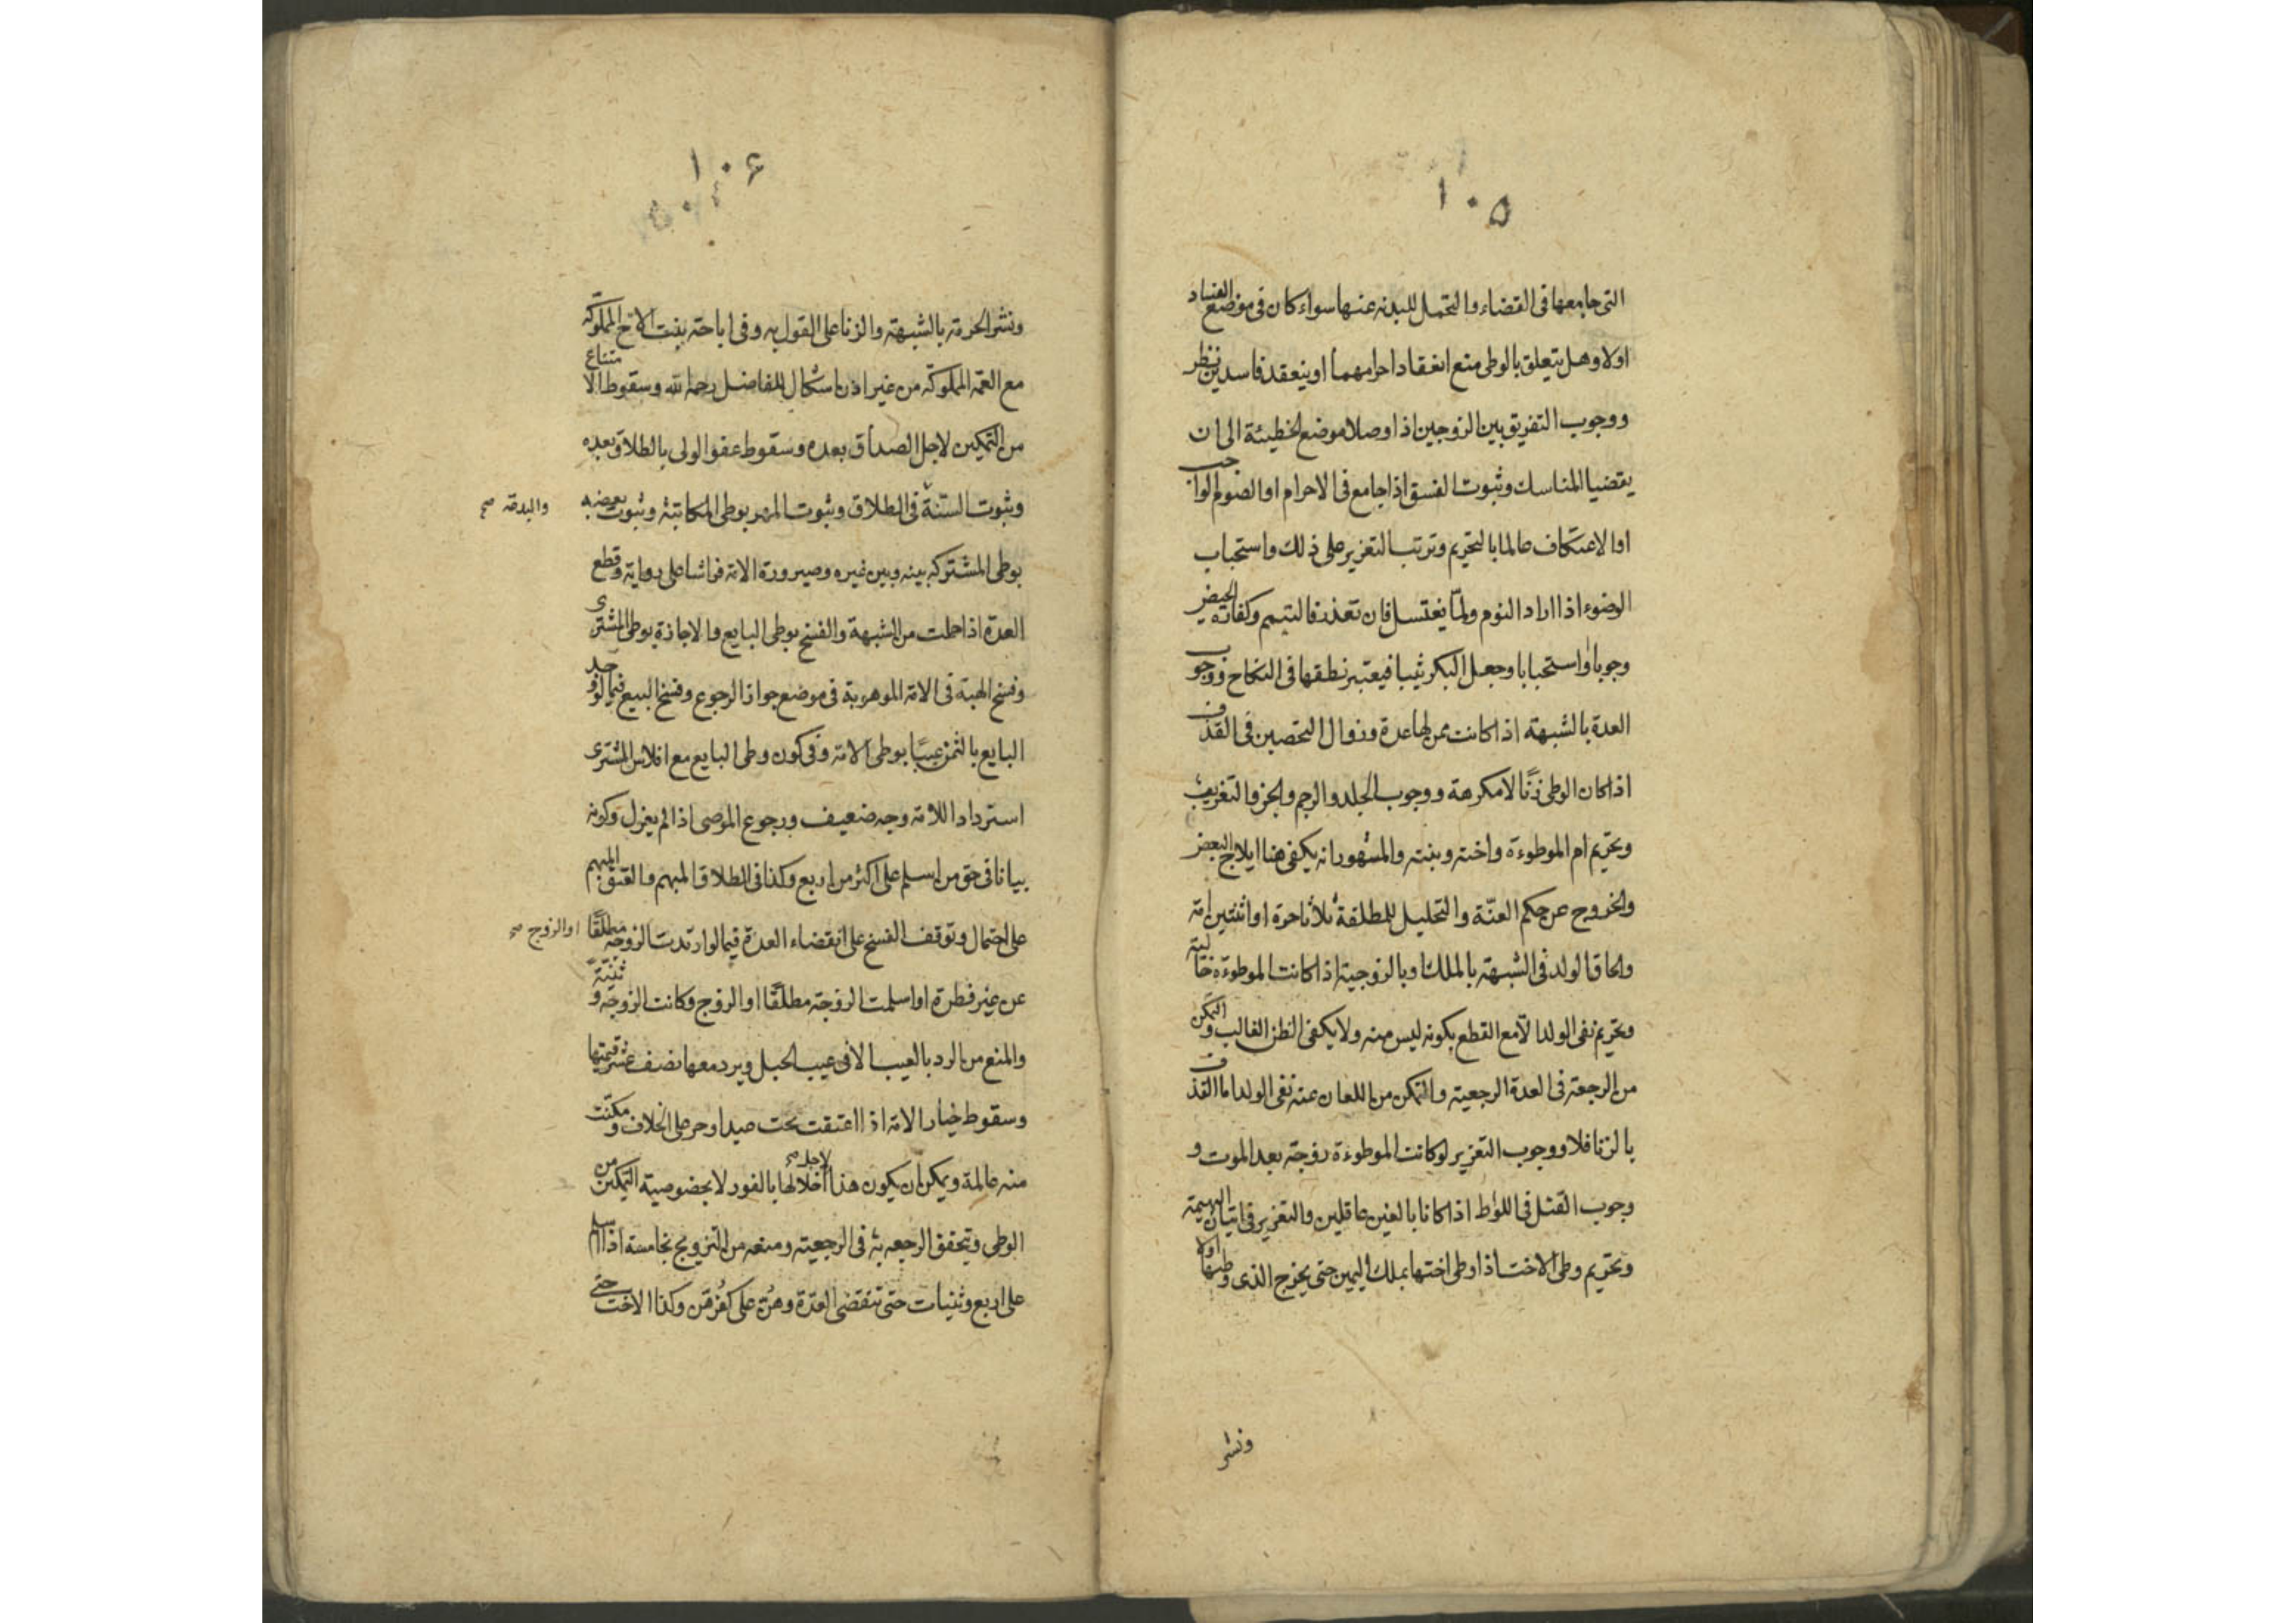 ١٠٥
التى جامعها فى القضاء والتحمل للبدنه عنها سواء كان فى موضع الفساد
اولا وهل يتعلق بالوطى منع انعقاد احرامهما او ينعقد فاسدين نظر
ووجوب التفريق بين الزوجين اذا وصلا موضع الخطيئة الى ان
يقضيا المناسك وثبوت الفسق اذا جامع فى الاحرام او الصوم الواجب
او الاعتكاف عالما بالتحريم وترتب التعزير على ذلك واستحباب
الوضوء اذا اراد النوم ولمّا يغتسل فان تعذر فالتيمم وكفارة الحيض
وجوبا واستحبابا وجعل البكر ثيبا فيعتبر نطقها فى النكاح ووجوب
العدة بالشبهة اذا كانت ممن لها عدة وزوال التحصين فى القذف
اذا كان الوطى زنًا لا مكرهة ووجوب الجلد والرجم والجز والتغريب
وتحريم ام الموطوءة واخته وبنته والمشهور انه يكفى هنا ايلاج البعض
والخروج عن حكم العنّة والتحليل للمطلقة ثلاثا حرة او اثنتين امة
والحاق الولد فى الشبهة بالملك وبالزوجية اذا كانت الموطوءة خالية
وتحريم نفى الولد الا مع القطع بكونه ليس منه ولا يكفى الظن الغالب والتمكن
من الرجعة فى العدة الرجعية والتمكن من اللعان عنه نفى الولد اما القذف
بالزنا فلا ووجوب التعزير لو كانت الموطوءة زوجته بعد الموت و
وجوب القتل فى اللواط اذا كانا بالغين عاقلين والتعزير فى اتيان البهيمة
وتحريم وطى الاخت اذا وطى اختها بملك اليمين حتى يخرج الذى وطيها اولا
ونشر
١٠۶
ونشر الحرمة بالشبهة والزنا على القول به وفى اباحة بنت الاخ المملوكة
مع العمة المملوكة من غير اذن اشكال للفاضل رحمه الله وسقوط الامتناع
من التمكين لاجل الصداق بعده وسقوط عفو الولى بالطلاق بعده
وثبوت السنة فى الطلاق وثبوت المهر بوطى المكاتبة وثبوت بعضه
والبدعة صح
بوطى المشتركه بينه وبين غيره وصيرورة الامة فراشا على رواية وقطع
العدة اذا حملت من الشبهة والفسخ بوطى البايع والاجازة بوطى المشترى
وفسخ الهبة فى الامة الموهوبة فى موضع جواز الرجوع وفسخ البيع فيما لو وجد
البايع بالثمن عيبًا بوطى الامة وفى كون وطى البايع مع افلاس المشترى
استردادا للامة وجه ضعيف ورجوع الموصى اذا لم يعزل وكونه
بيانا فى حق من اسلم على اكثر من اربع وكذا فى الطلاق المبهم والعتق المبهم
على احتمال وتوقف الفسخ على انقضاء العدة فيما لو ارتدت الزوجة مطلقًا
او الزوج صح
عن غير فطرة او اسلمت الزوجة مطلقًا او الزوج وكانت الزوجة وثنيّة
والمنع من الرد بالعيب الا فى عيب الحبل ويرد معها نصف عشر قيمتها
وسقوط خيار الامة اذا اعتقت تحت عبد او حر على الخلاف ومكنت
منه عالمة ويمكن ان يكون هذا لاجل صح اخلالها بالفور لا بخصوصية التمكين من
الوطى وتحقق الرجعه به فى الرجعية ومنعه من التزويج بخامسة اذا اسلم
على اربع وثنيات حتى تنقضى العدّة وهنّ على كفرهن وكذا الاخت حتى